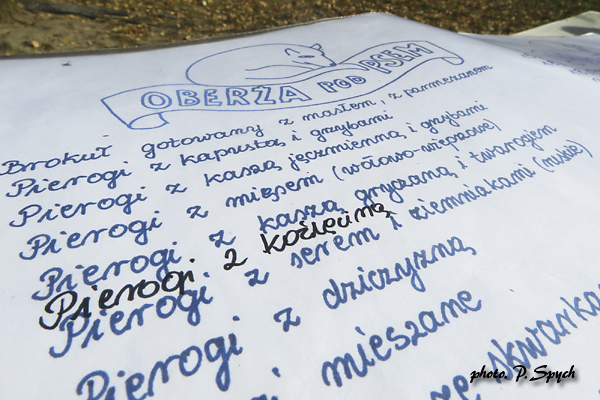 OBERŻA POD PSEM
Brokuł gotowany z masłem, z parmezanem
Pierogi z kapustą i grzybami
Pierogi z kaszą jęczmienną i grzybami
Pierogi z mięsem (wołowo-wieprzowe)
Pierogi z kaszą gryczaną i twarogiem
Pierogi z koźlęciną
Pierogi z serem i ziemniakami (ruskie)
Pierogi z dziczyzną
Pierogi mieszane
ze skwarka
photo. P. Spych